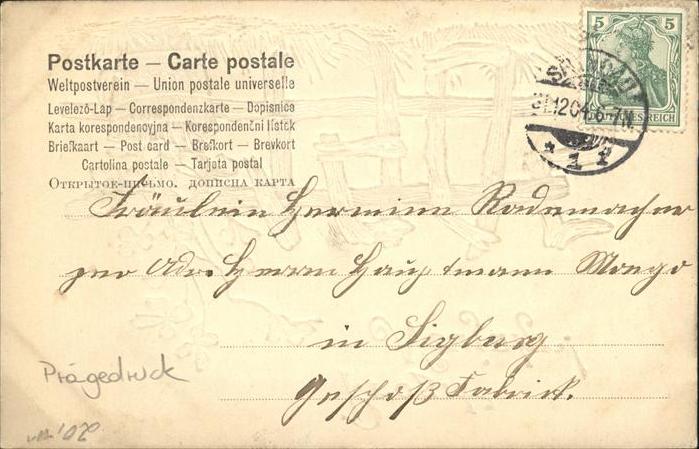 Postkarte — Carte postale
Weltpostverein — Union postale universelle
Levelező-Lap — Correspondenzkarte — Dopisnice
Karta korespondencyjna — Korespondenční lístek
Briefkaart — Post card — Brefkort — Brevkort
Cartolina postale — Tarjeta postal
Открытое-письмо. дописна карта
5 5
31.12.04. 6-7N.
* 1
Fräulein Hermine Rademacher
per Adr. Herrn Hauptmann
in Sigburg
Geschoß Fabrick.
Prägedruck